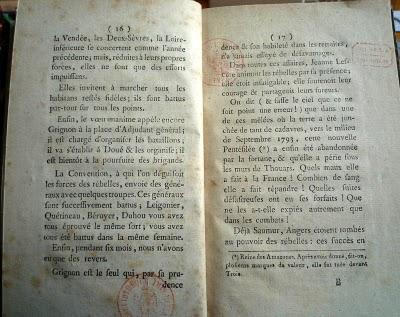 ( 16 )
la Vendée, les Deux-Sèvres, la Loire-
inférieure se concertent comme l'année
précédente; mais, réduites à leurs propres
forces, elles ne font que des efforts
impuissans.
Elles invitent à marcher tous les
habitans restés fidèles; ils sont battus
par-tout sur tous les points.
Enfin, le vœu unanime appèle encore
Grignon à la place d'Adjudant général;
il est chargé d'organiser les bataillons;
il va s'établir à Doué & les organise; il
est bientôt à la poursuite des brigands.
La Convention, à qui l'on déguisoit
les forces des rebelles, envoie des géné-
raux avec quelques troupes. Ces généraux
sont successivement battus; Leigonier,
Quétineau, Béruyer, Duhou vous avez
tous éprouvé le même sort; vous avez
tous été battus dans la même semaine.
Enfin, pendant six mois, nous n'avons
eu que des revers.
Grignon est le seul qui, par sa pru-
dence
( 17 )
dence & son habileté dans les retraites,
n'a jamais essuyé de désavantages.
Dans toutes ces affaires, Jeanne Lesc-
cure animoit les rébelles par sa présence;
elle étoit infatigable; elle soutenoit leur
courage & partageoit leurs fureurs.
On dit ( & fasse le ciel que ce ne
soit point une erreur!) que dans une
de ces mêlées où la terre a été jon-
chée de tant de cadavres, vers le milieu
de Septembre 1793, cette nouvelle
Pentésilée (*) a enfin été abandonnée
par la fortune, & qu'elle a périe sous
les murs de Thouars. Quels maux elle
a fait à la France! Combien de sang
elle a fait répandre! Quelles suites
désastreuses ont eu ses forfaits! Que
ne les a-t-elle expiés autrement que
dans les combats!
Déja Saumur, Angers étoient tombés
au pouvoir des rébelles: ces succès en
(*) Reine des Amazones. Après avoir donné, dit-on,
plusieurs marques de valeur, elle fut tuée devant
Troie.
B